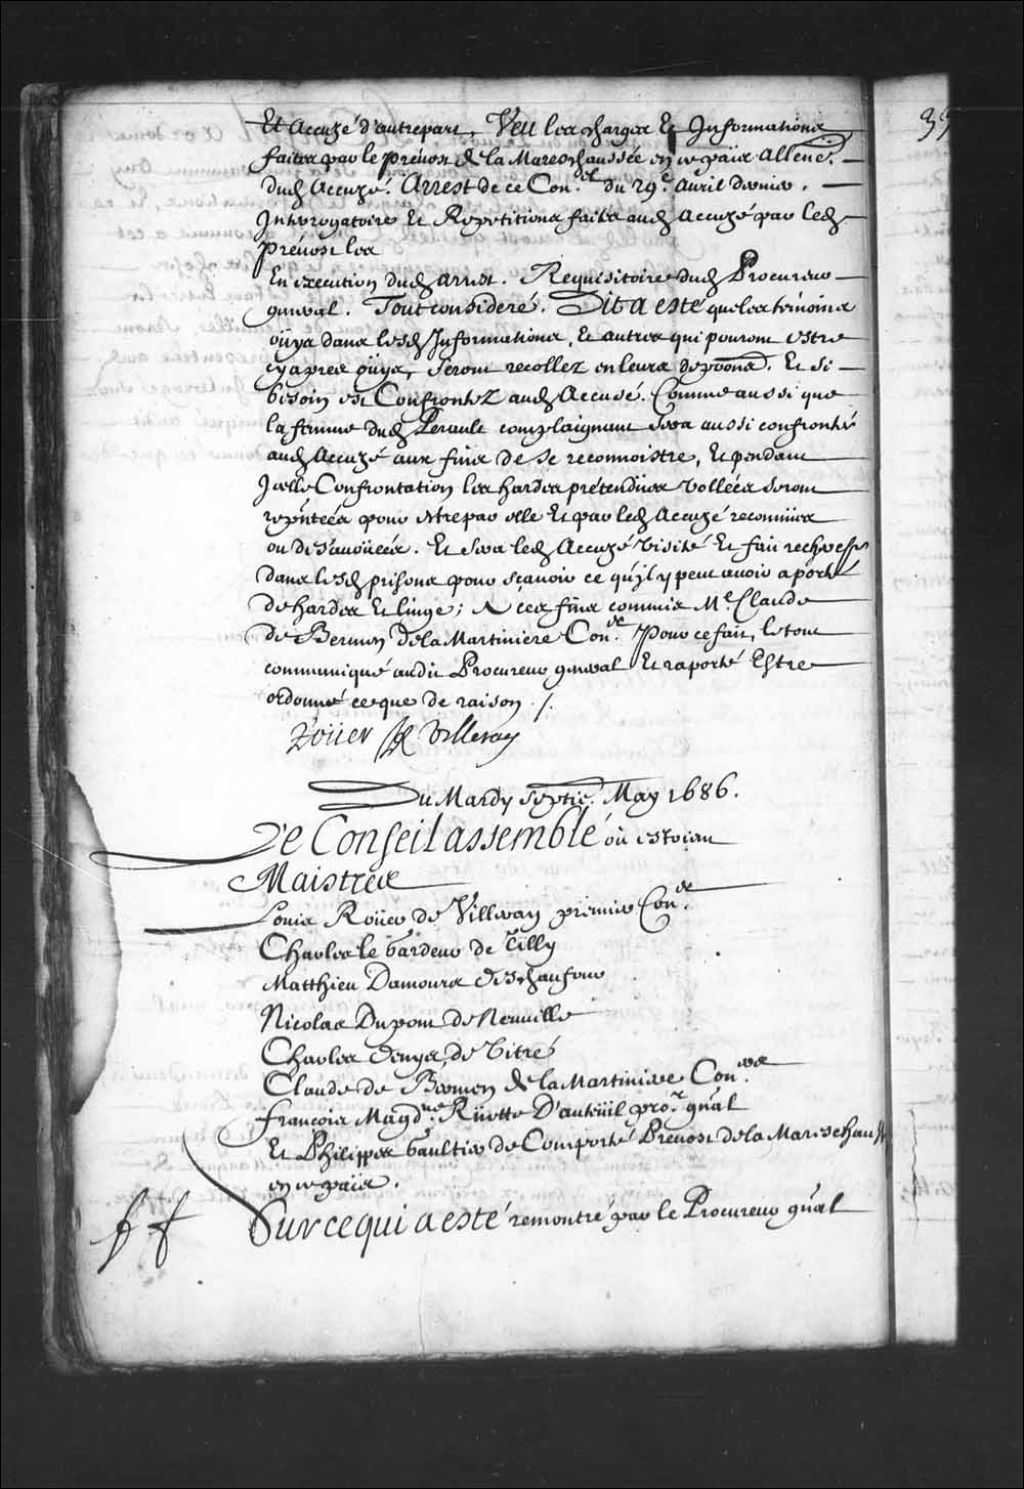 Et Accuzé d'autrepart, Veu les charges Et Informations
faites par le prévost de la Mareschaussée en ce païs Allenc.
dud. Accuzé. Arrest de ce Con.el du 29.e Auril dernier.
Interrogatoire Et Repetitions faites aud. Accuzé par led.
prévost les
En execution dud. arrest. Requisitoire dud. Procureur
general. Tout consideré. Dit a esté que les témoins
oüys dans lesd. Informations, Et autres qui pouront estre
cy apres oüys, seront recollez en leurs depoons. Et si
besoin est Confrontez aud. Accusé. Comme aussi que
la femme dud. Perault complaignant sera aussi confrontée
aud. Accuzé aux fins de se reconnoistre, Et pendant
Icelle Confrontation les hardes prétendües vollées seront
reputées pour estre par elle Et par led. Accuzé reconnües
ou desavoüées. Et sera led. Accuzé visité Et fait recherche
dans lesd. prisons pour sçavoir ce qu'il y peut avoir aporté
de hardes Et linge; A ces fins commis M.e Claude
de Bermen de la Martiniere Con.er Pour ce fait, le tout
communiqué audit Procureur general Et raporté Estre
ordonné ce que de raison ./.
Roüer De Villeray
Du Mardy septie. May 1686.
Le Conseil assemblé où estoient
Maistres
Louis Roüer de Villeray premier Con.er
Charles le Gardeur de Tilly
Matthieu Damours deschaufour
Nicolas Dupont de Neuville
Charles Denys de Vitré
Claude de Bermen de la Martiniere Con.ers
françois Magd.ne Rüette D'auteüil pro.r gnãl
Et Philippes Gaultier de Comporté Prevost de la Mareschauss.
en ce païs.
Sur ce qui a esté remontré par le Procureur gnãl